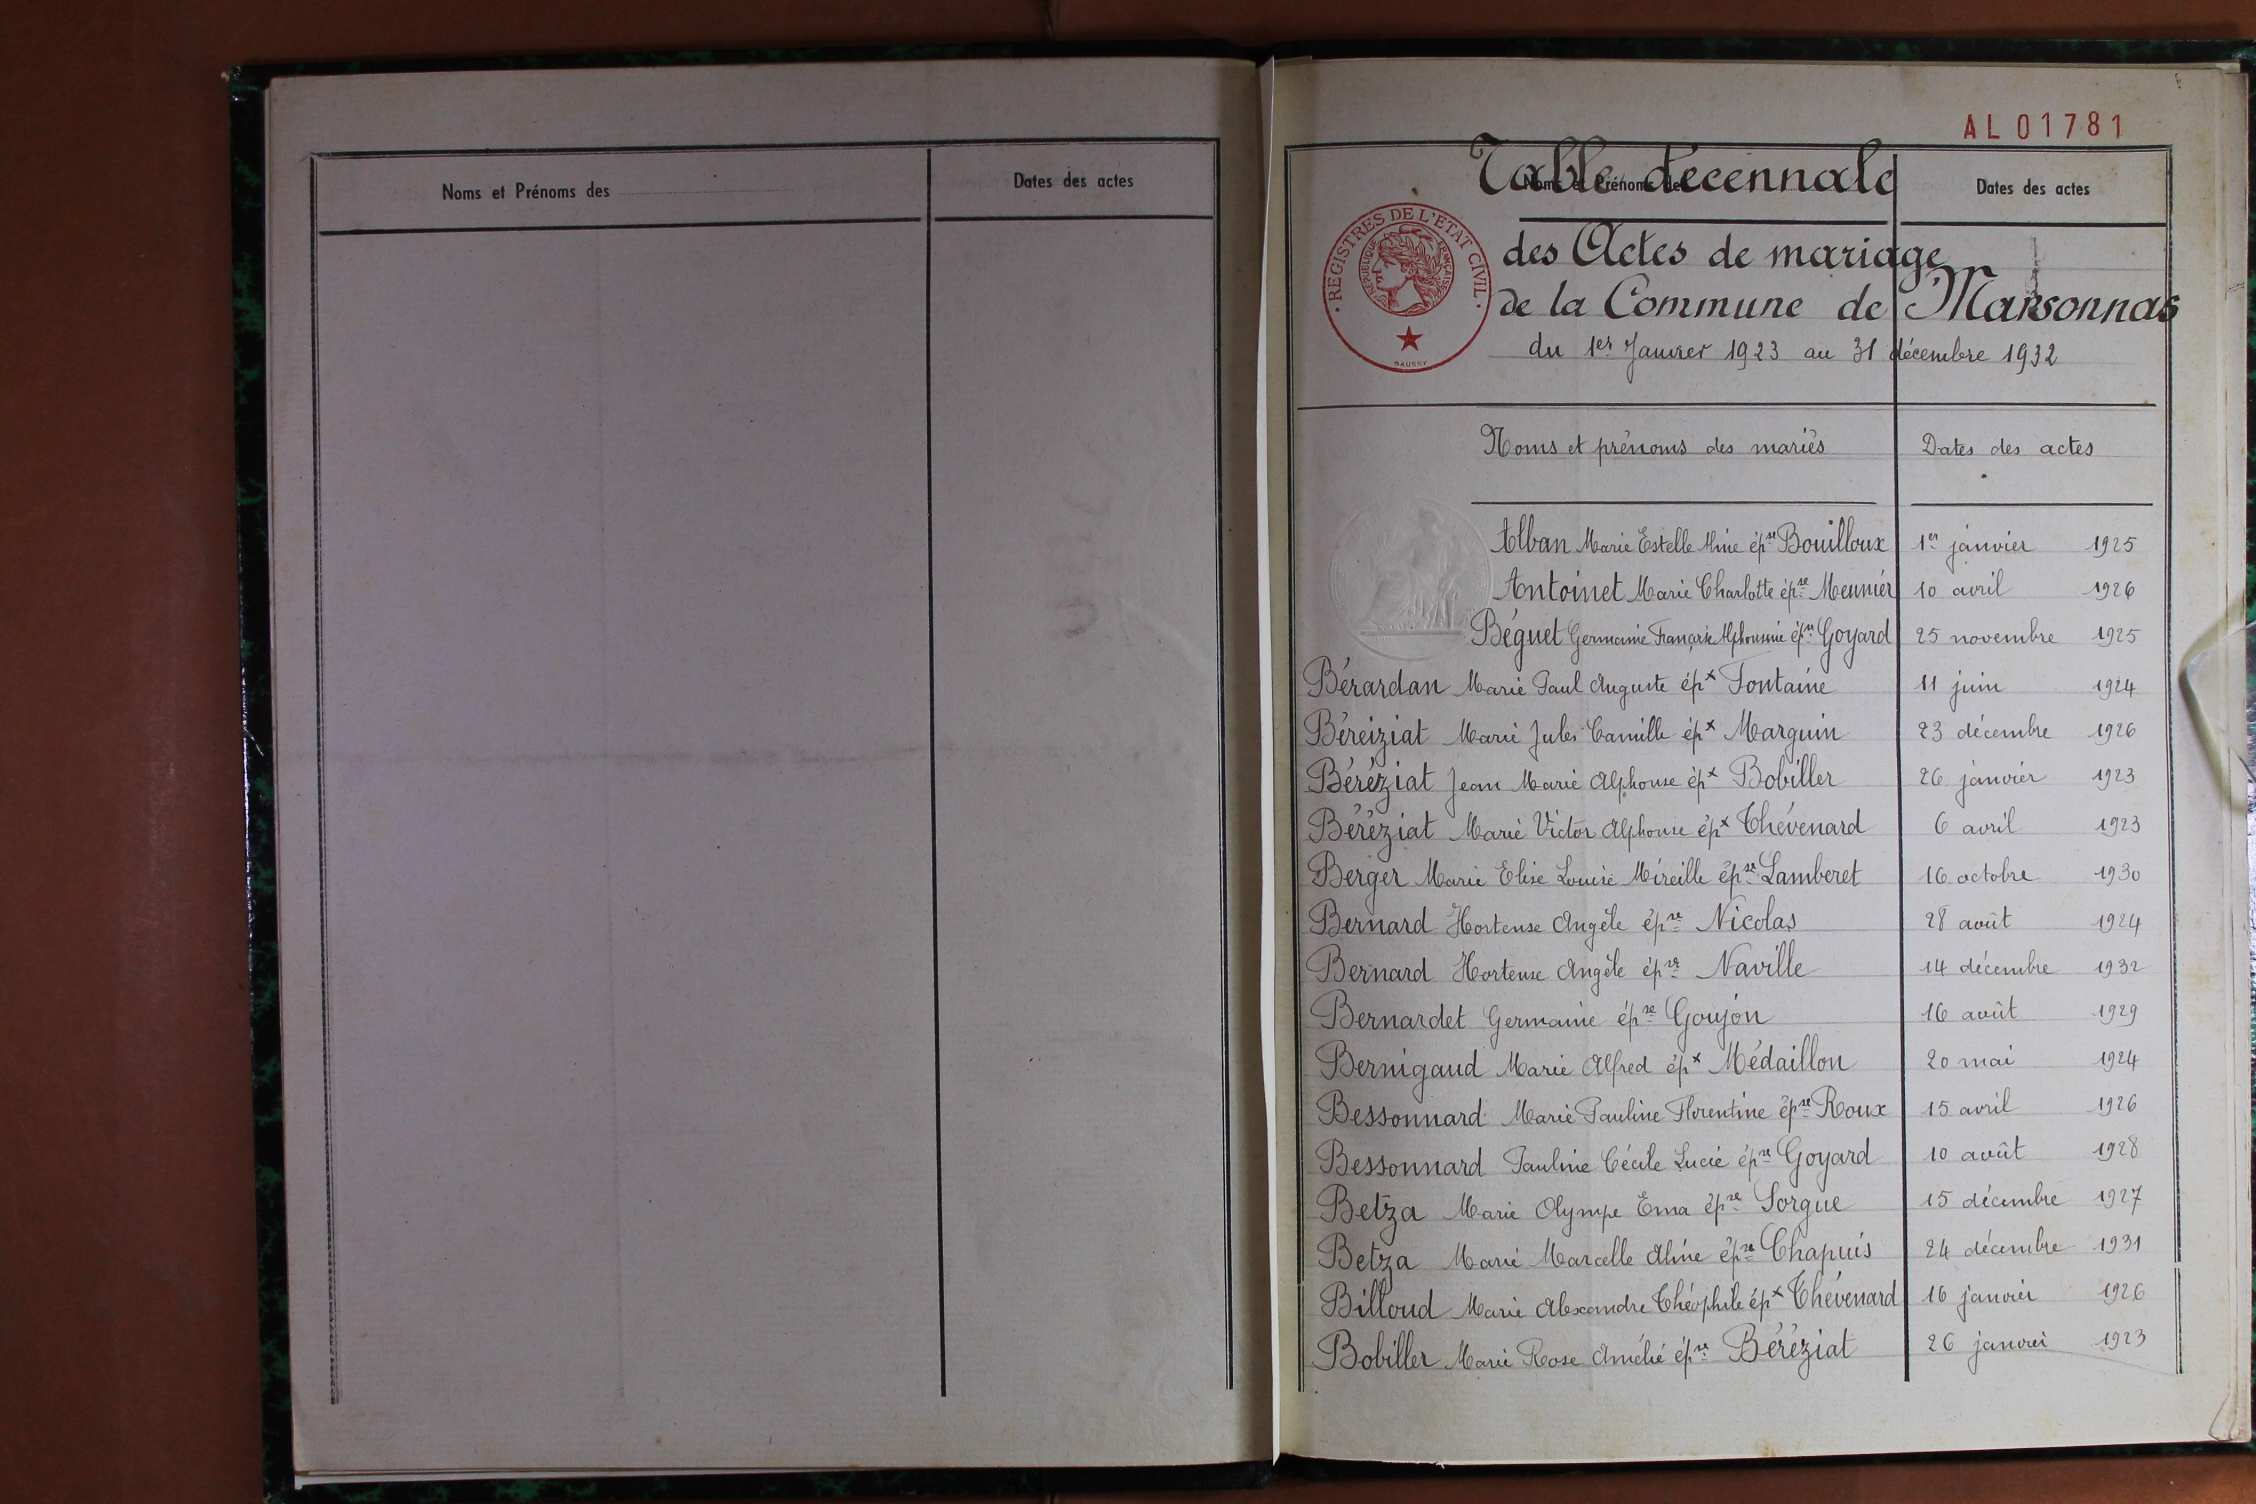 Noms et Prénoms des
Dates des actes
AL 01781
Table décennale
Noms et Prénoms des
Dates des actes
REGISTRES DE L'ETAT CIVIL
REPUBLIQUE FRANÇAISE
des Actes de mariage
de la Commune de Marsonnas
du 1er Janvier 1923 au 31 décembre 1932
Noms et prénoms des mariés Dates des actes
Alban Marie Estelle Aline épse Bouilloux 1er janvier 1925
Antoinet Marie Charlotte épse Meunier 10 avril 1926
Béguet Germaine Françoise Alphonsine épse Goyard 25 novembre 1925
Bérardan Marie Paul Auguste épx Fontaine 11 juin 1924
Béreiziat Marie Jules Camille épx Marguin 23 décembre 1926
Béréziat Jean Marie Alphonse épx Bobiller 26 janvier 1923
Béréziat Marie Victor Alphonse épx Thévenard 6 avril 1923
Berger Marie Elise Louise Mireille épse Lamberet 16 octobre 1930
Bernard Hortense Angèle épse Nicolas 28 août 1924
Bernard Hortense Angèle épse Naville 14 décembre 1932
Bernardet Germaine épse Goujon 16 août 1929
Bernigaud Marie Alfred épx Médaillon 20 mai 1924
Bessonnard Marie Pauline Florentine épse Roux 15 avril 1926
Bessonnard Pauline Cécile Lucie épse Goyard 10 août 1928
Betza Marie Olympe Ema épse Sorgue 15 décembre 1927
Betza Marie Marcelle Aline épse Chapuis 24 décembre 1931
Billoud Marie Alexandre Théophile épx Thévenard 16 janvier 1926
Bobiller Marie Rose Amélie épse Béréziat 26 janvier 1923